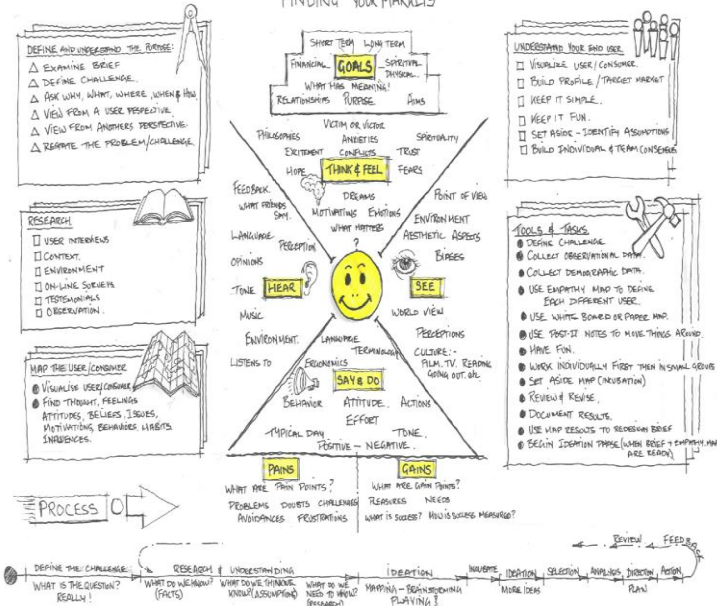 FINDING YOUR MARKETS
DEFINE AND UNDERSTAND THE PURPOSE:
EXAMINE BRIEF
DEFINE CHALLENGE.
ASK WHY, WHAT, WHERE, WHEN & HOW
VIEW FROM A USER PESPECTIVE
VIEW FROM ANOTHERS PERSPECTIVE.
REFRAME THE PROBLEM/CHALLENGE.
RESEARCH
USER INTERVIEWS
CONTEXT.
ENVIRONMENT
ON-LINE SURVEYS
TESTEMONIALS
OBSERVATION.
MAP THE USER/CONSUMER
VISUALISE USER/CONSUMER
FIND THOUGHT, FEELINGS
ATTITUDES, BELIEFS, ISSUES,
MOTIVATIONS, BEHAVIORS, HABITS
INFLUENCES.
SHORT TERM LONG TERM
FINANCIAL GOALS SPIRITUAL
PHYSICAL
WHAT HAS MEANING!
RELATIONSHIPS PURPOSE AIMS
VICTIM OR VICTOR
PHILOSOPHIES ANXIETIES SPIRITUALITY
EXCITEMENT CONFLICTS TRUST
HOPE THINK & FEEL FEARS
DREAMS
MOTIVATIONS EMOTIONS
WHAT MATTERS
?
FEEDBACK.
WHAT FRIENDS
SAY.
LANGUAGE
PERCEPTION
OPINIONS
TONE HEAR
MUSIC
ENVIRONMENT.
LISTENS TO
POINT OF VIEW
ENVIRONMENT
AESTHETIC ASPECTS
BIASES
SEE
WORLD VIEW
PERCEPTIONS
CULTURE:-
FILM. TV. READING
GOING OUT. etc
LANGUAGE
TERMINOLOGY
ERGONOMICS
SAY & DO
BEHAVIOR ATTITUDE. ACTIONS
EFFORT
TYPICAL DAY. TONE.
POSITIVE - NEGATIVE.
PAINS
WHAT ARE PAIN POINTS?
PROBLEMS DOUBTS CHALLENGES
AVOIDANCES FRUSTRATIONS
GAINS
WHAT ARE GAIN POINTS?
PLEASURES NEEDS
WHAT IS SUCCESS? HOW IS SUCCESS MEASURED?
UNDERSTAND YOUR END USER
VISUALIZE USER/CONSUMER.
BUILD PROFILE / TARGET MARKET
KEEP IT SIMPLE.
KEEP IT FUN.
SET ASIDE - IDENTIFY ASSUMPTIONS
BUILD INDIVIDUAL & TEAM CONSENSUS
TOOLS & TASKS
DEFINE CHALLENGE
COLLECT OBSERVATIONAL DATA.
COLLECT DEMOGRAPHIC DATA.
USE EMPATHY MAP TO DEFINE
EACH DIFFERENT USER.
USE WHITE BOARD OR PAPER MAP.
USE POST-IT NOTES TO MOVE THINGS AROUND.
HAVE FUN.
WORK INDIVIDUALLY FIRST THEN IN SMALL GROUPS
SET ASIDE MAP (INCUBATION)
REVIEW & REVISE,
DOCUMENT RESULTS.
USE MAP RESULTS TO REDESIGN BRIEF
BEGIN IDEATION PHASE (WHEN BRIEF + EMPATHY MAP
ARE READY)
PROCESS
REVIEW FEEDBACK
DEFINE THE CHALLENGE RESEARCH & UNDERSTANDING IDEATION INCUBATE IDEATION SELECTION ANALYSIS, DIRECTION, ACTION,
WHAT IS THE QUESTION? WHAT DO WE KNOW? WHAT DO WE THINK WE WHAT DO WE MAPPING - BRAINSTORMING MORE IDEAS PLAN
REALLY! (FACTS) KNOW? (ASSUMPTIONS) NEED TO KNOW? PLAYING!
(RESEARCH)